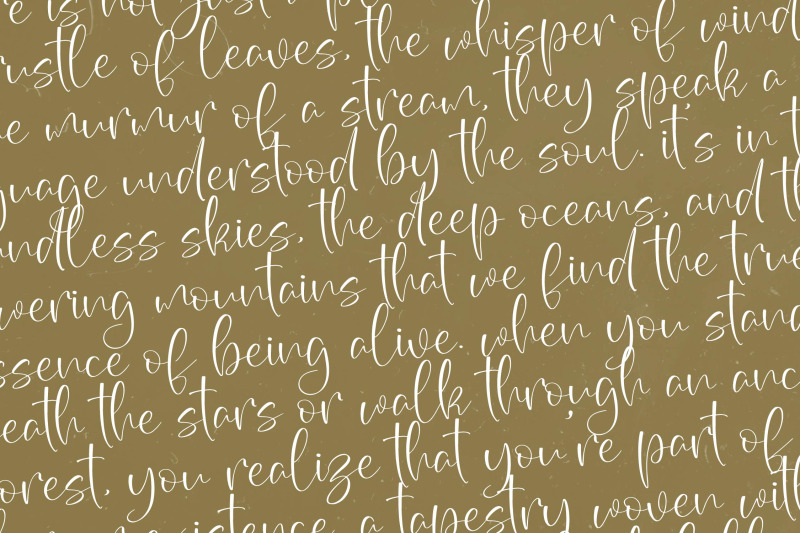 e is not just a p
rustle of leaves, the whisper of wind
e murmur of a stream, they speak a
guage understood by the soul. it's in t
ndless skies, the deep oceans, and th
wering mountains that we find the true
ssence of being alive. when you stand
eath the stars or walk through an anc
orest, you realize that you're part of
istence, a tapestry woven with